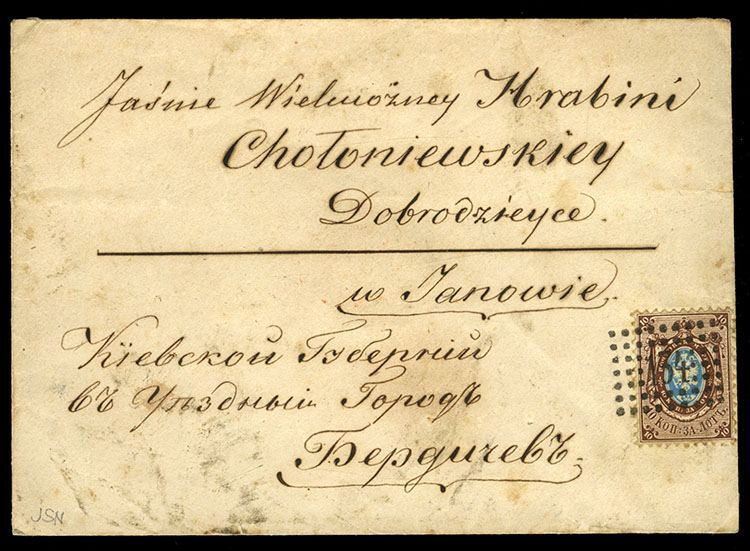 Jaśnie Wielmożney Hrabini
Chołoniewskiey
Dobrodzieyce.
w Janowie.
Кіевской Губерніи
въ Уѣздный Городъ
Бердичевъ.
10 КОП: ЗА ЛОТЪ.
JSN